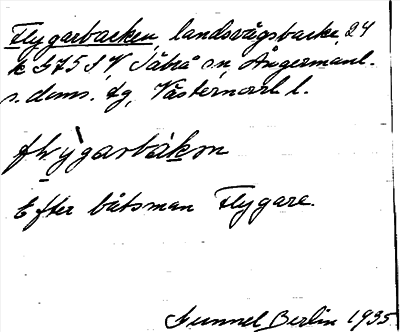 Flygarbacken, landsvägsbacke, 24
k 575 S V, Säbrå sn, Ångermanl.
s. doms. dg, Västernorrl l.
flỳgarbákₐn
Efter båtsman Flygare.
Gunnel Berlin 1935